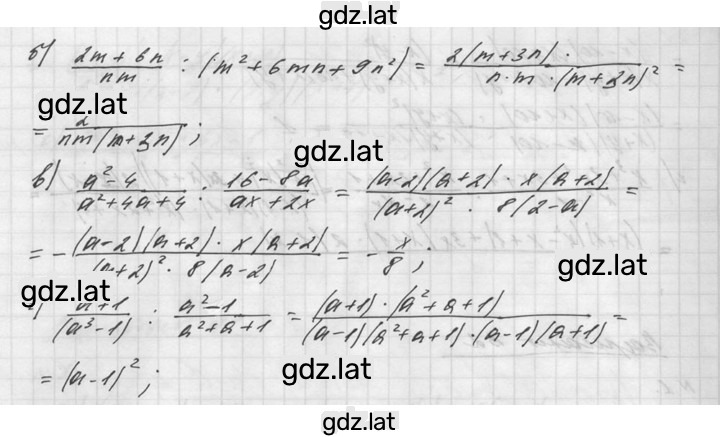 gdz.lat
б) (2m + 6n)/(nm) : (m² + 6mn + 9n²) = (2(m+3n) ·)/(n·m·(m+3n)²) =
gdz.lat
= 2/(nm(m+3n));
gdz.lat
в) (a²-4)/(a²+4a+4) : (16-8a)/(ax+2x) = ((a-2)(a+2) · x(a+2))/((a+2)² · 8(2-a)) =
= -((a-2)(a+2) · x(a+2))/((a+2)² · 8(a-2)) = -x/8;
gdz.lat
gdz.lat
г) (a+1)/((a³-1)) : (a²-1)/(a²+a+1) = ((a+1)·(a²+a+1))/((a-1)(a²+a+1)·(a-1)(a+1)) =
= (a-1)²;
gdz.lat
gdz.lat